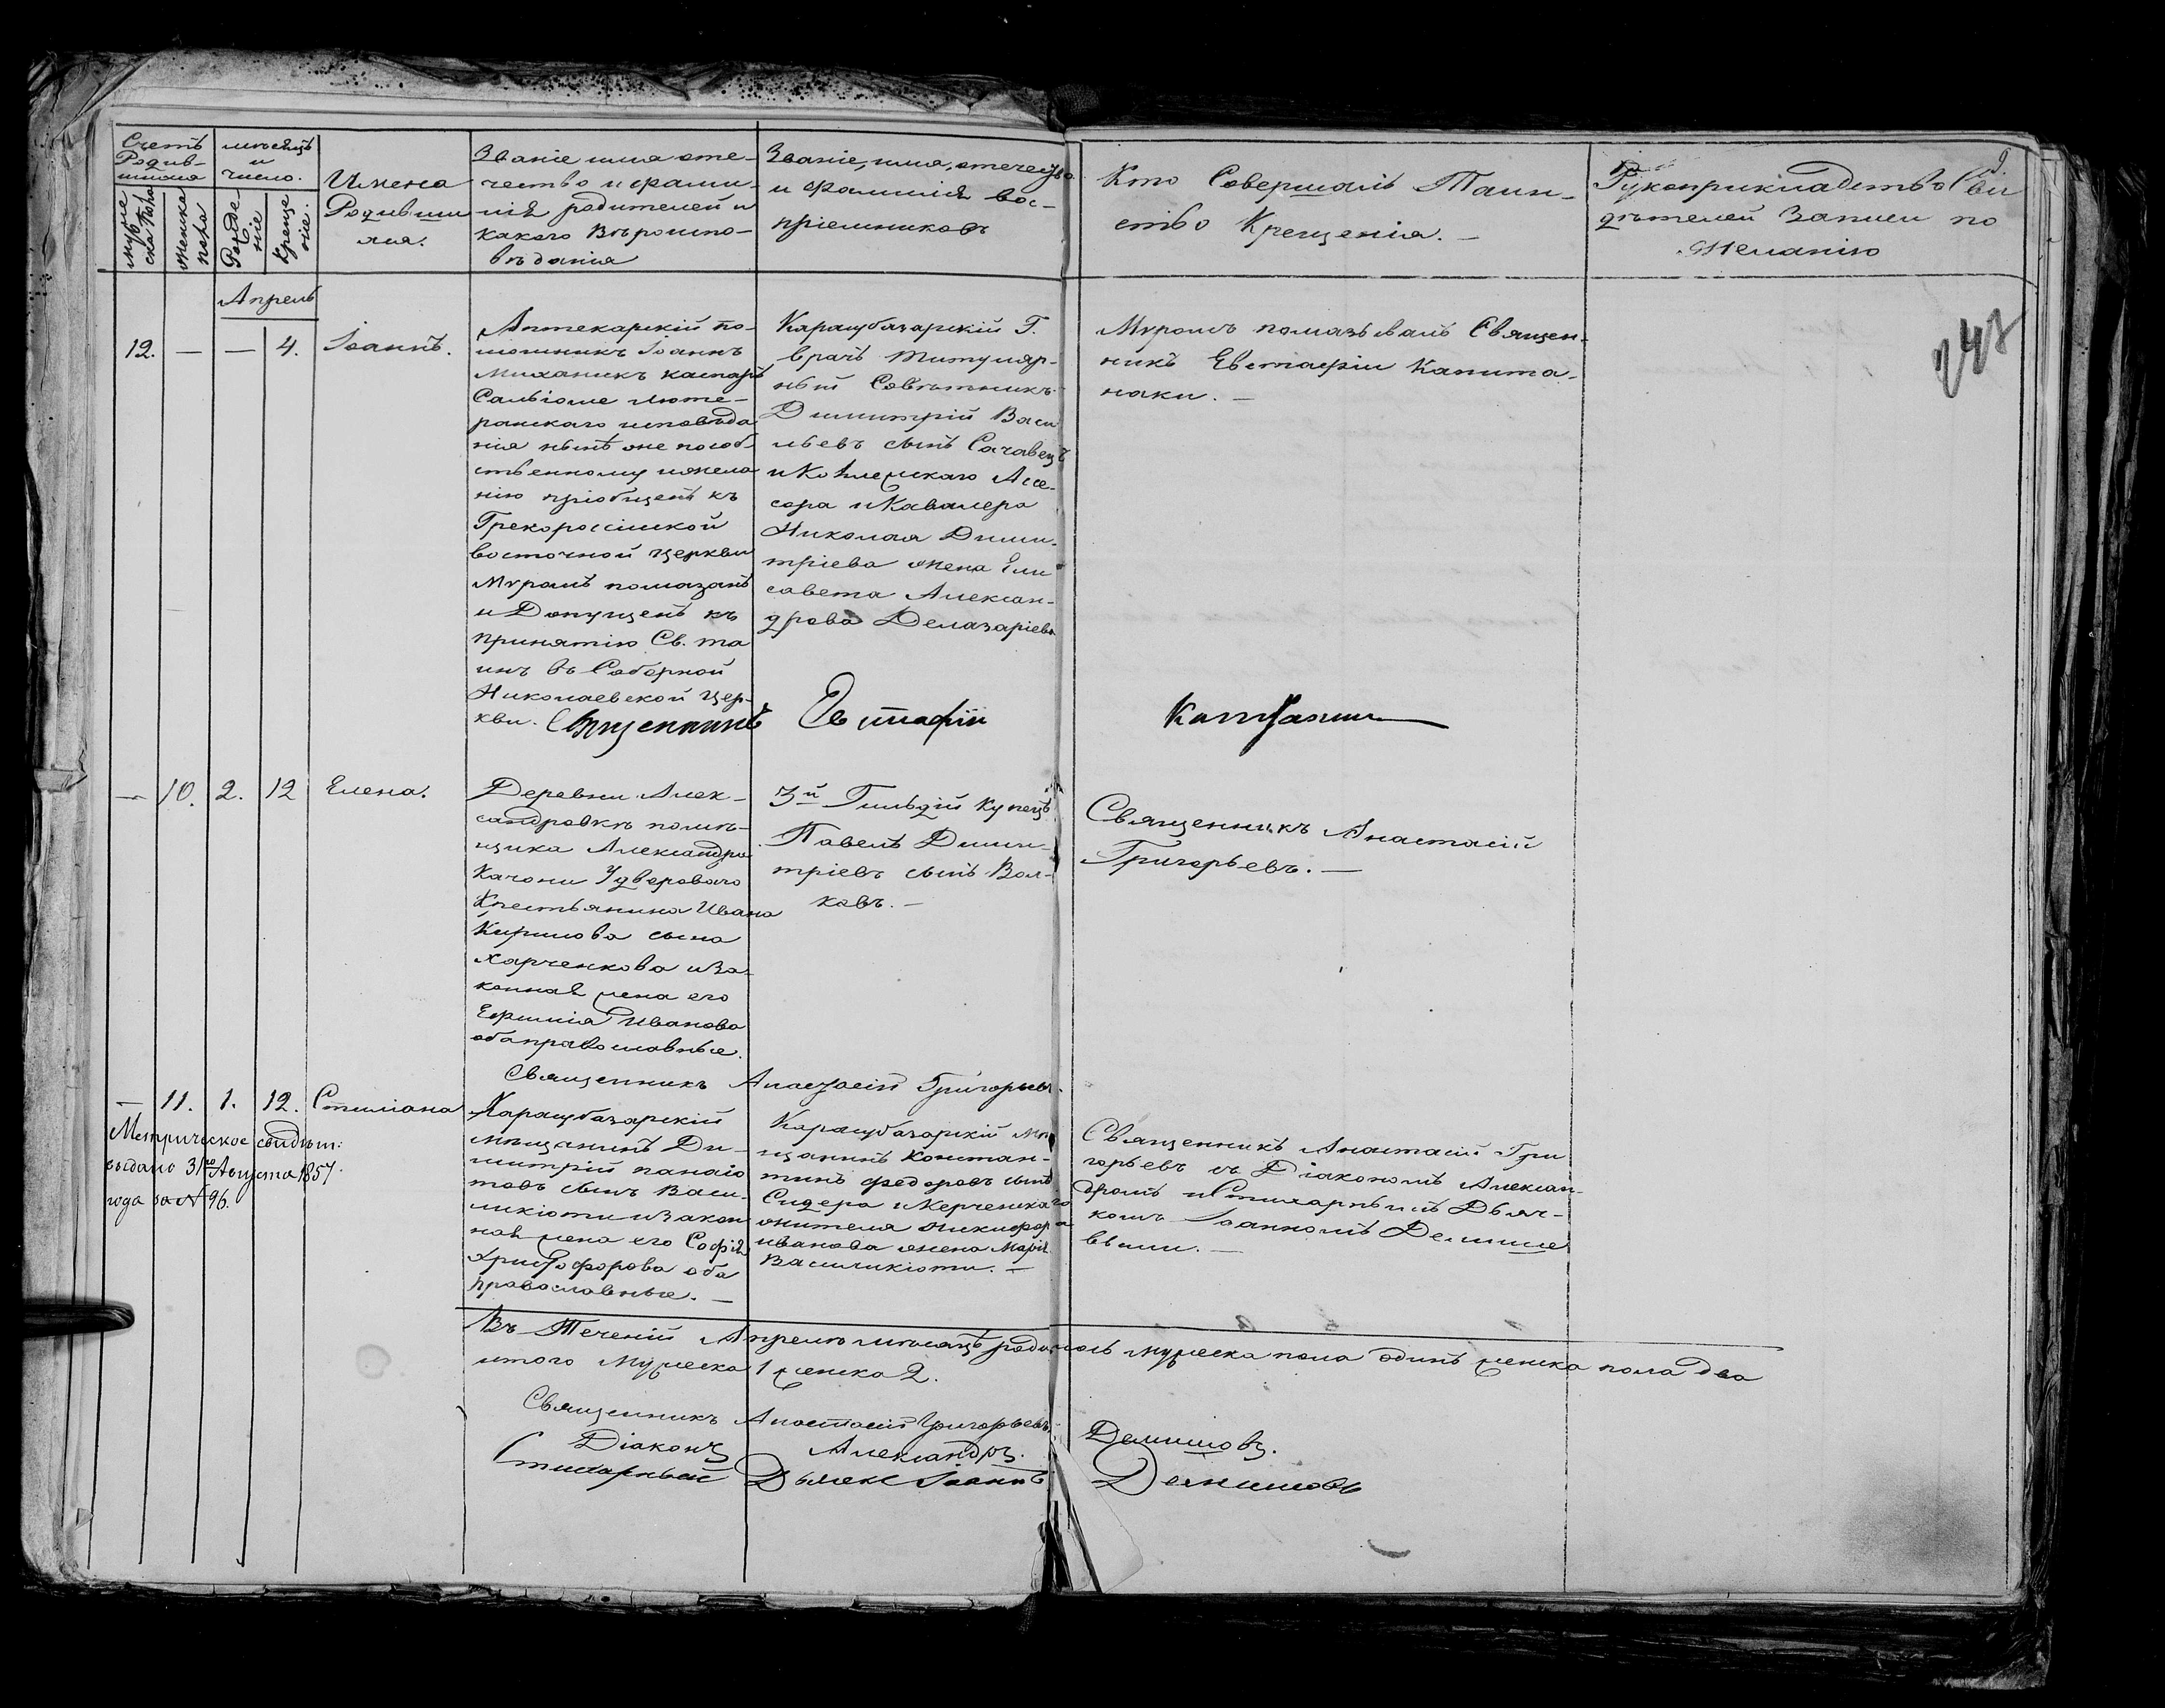 Счетъ
Родив-
шихся
мѣсяцъ
и
число.
Имена
Родивши
хся.
Званіе имя оте-
чество и фами-
лія родителей и
какого вѣроиспо-
вѣданія
Званіе, имя, отечество
и Фамилія вос-
пріемниковъ
Кто Совершалъ Таин-
ство Крещенія. —
Рукоприкладство Сви
дѣтелей Записи по
Желанію
Муже
ска пола
Женска
пола
Рожде
ніе
Креще
ніе.
Апрель
12. — — 4. Іоаннъ.
Аптекарскій по-
мошникъ Іоаннъ
лютe-
ранскаго исповѣда
нія нынѣ же по соб-
ственному жела
нію пріобщенъ къ
Грекороссійской
восточной церкви
Мѵромъ помазанъ
и Допущенъ къ
принятію Св. та
инъ въ Соборной
Николаевской Цер-
кви. Священникъ Евстафій
Карасубазарскій Г.
врачъ Титуляр-
ный Совѣтникъ
Димитрій Васи
льевъ сынъ
и Коллежскаго Ассе-
сора и Кавалера
Николая Дими-
тріева жена Ели
савета Алексан-
дрова
Мѵромъ помазывалъ Священ-
никъ Евстафій Капита-
наки. —
Капитанаки
247
— 10. 2. 12 Елена.
Деревни Алек-
сандровкѣ помѣ-
щика Александра
Качони
Крестьянина Ивана
Кирилова сына
Харченкова и За-
конная жена его
Ефимія Иванова
оба православные.
3й Гильдій Купецъ
Павелъ Дими-
тріевъ сынъ Вол-
ковъ. —
Священникъ Анастасій
Григорьевъ. —
Священникъ Анастасій Григорьевъ.
— 11. 1. 12. Стиліана
Метрическое свидѣт:
выдано 31го Августа 1857
года за № 96.
Карасубазарскій
мѣщанинъ Ди-
митрій Панаіо
товъ сынъ Васи-
ликіоти и Закон
ная жена его Софія
Христофорова оба
православные. —
Карасубазарскій мѣ
щанинъ Констан-
тинъ Федоровъ сынъ
Сидера и Керченскаго
жителя Никифора
Иванова жена Марія
Василикіоти. —
Священникъ Анастасій Гри
горьевъ съ Діакономъ Алексан-
дромъ и Стихарнымъ Дьяч-
комъ Іоанномъ Демише
выми. —
Въ Теченій Апреля мѣсяцъ родилось мужеска пола одинъ женска пола два
итого Мужеска 1 женска 2.
Священникъ Анастасій Григорьевъ.
Діаконъ Александръ. Демишовъ.
Стихарный Дьячекъ Іоаннъ Демишовъ